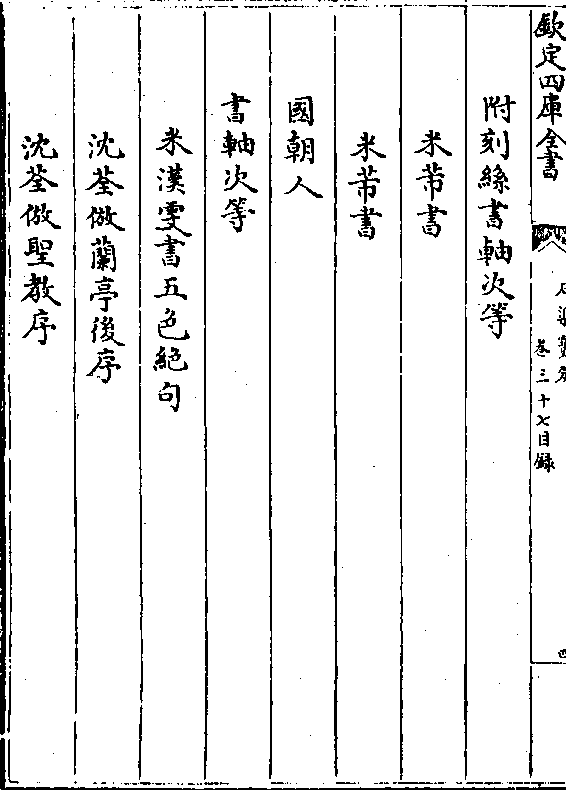 欽定四庫全書
石渠寳笈
卷三十七目録
四
附刻絲書軸次等
米芾書
米芾書
國朝人
書軸次等
米漢雯書五色絕句
沈荃倣蘭亭後序
沈荃倣聖教序